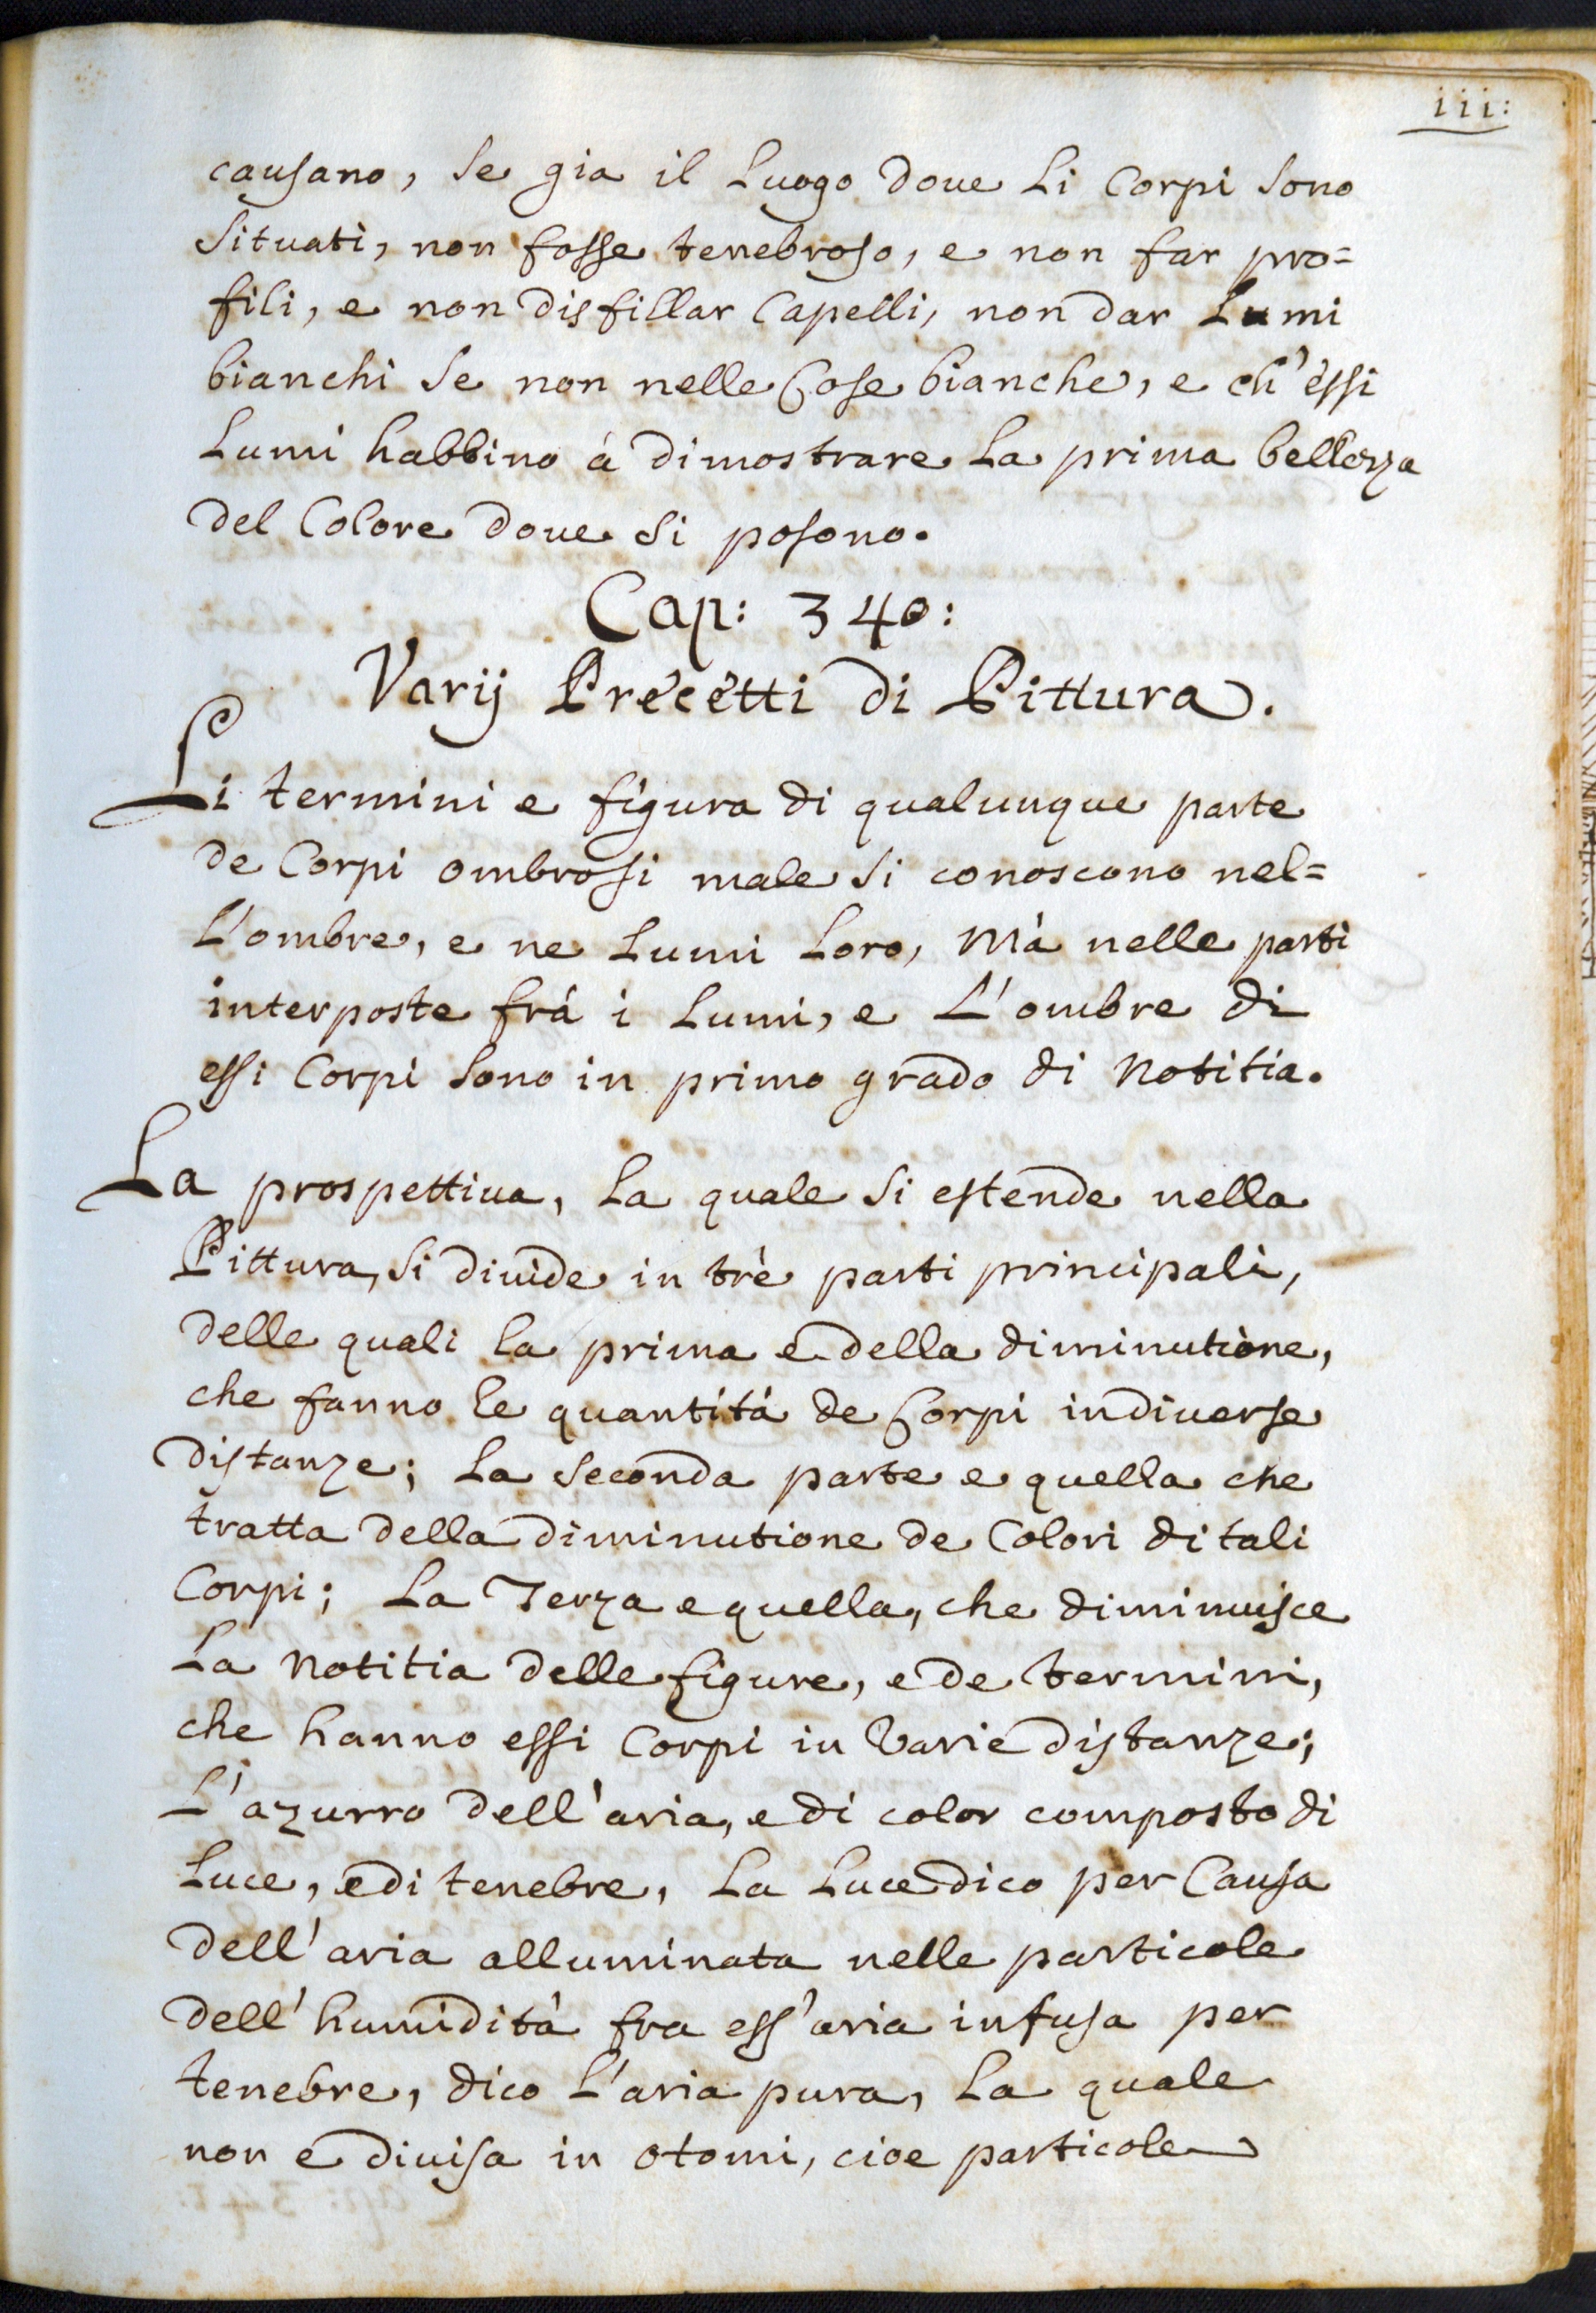 iii:
causano, se gia il Luogo doue Li Corpi sono
situati, non fosse tenebroso, e non far pro=
fili, e non disfillar Capelli, non dar Lumi
bianchi se non nelle Cose bianche, e ch'èssi
Lumi habbino à dimostrare La prima bellezza
del Colore doue si posono.
Cap: 340:
Varij Precètti di Pittura.
Li termini e figura di qualunque parte
de Corpi ombrosi male si conoscono nel=
L'ombre, e ne Lumi Loro, Mà nelle parti
interposte frà i Lumi, e L'ombre di
essi Corpi sono in primo grado di Notitia.
La prospettiua, La quale si estende nella
Pittura, si diuide in trè parti principali,
delle quali la prima e della diminutione,
che fanno le quantità de Corpi indiuerse
distanze; La seconda parte e quella che
tratta della diminutione de Colori di tali
Corpi; La Terza e quella, che diminuisce
La Notitia delle figure, e de termini,
che hanno essi Corpi in Varie distanze;
L'azurro dell'aria, e di color composto di
Luce, e di tenebre, La Luce dico per Causa
dell'aria alluminata nelle particole
dell'humidità fra ess'aria infusa per
tenebre, dico L'aria pura, La quale
non e diuisa in otomi, cioe particole